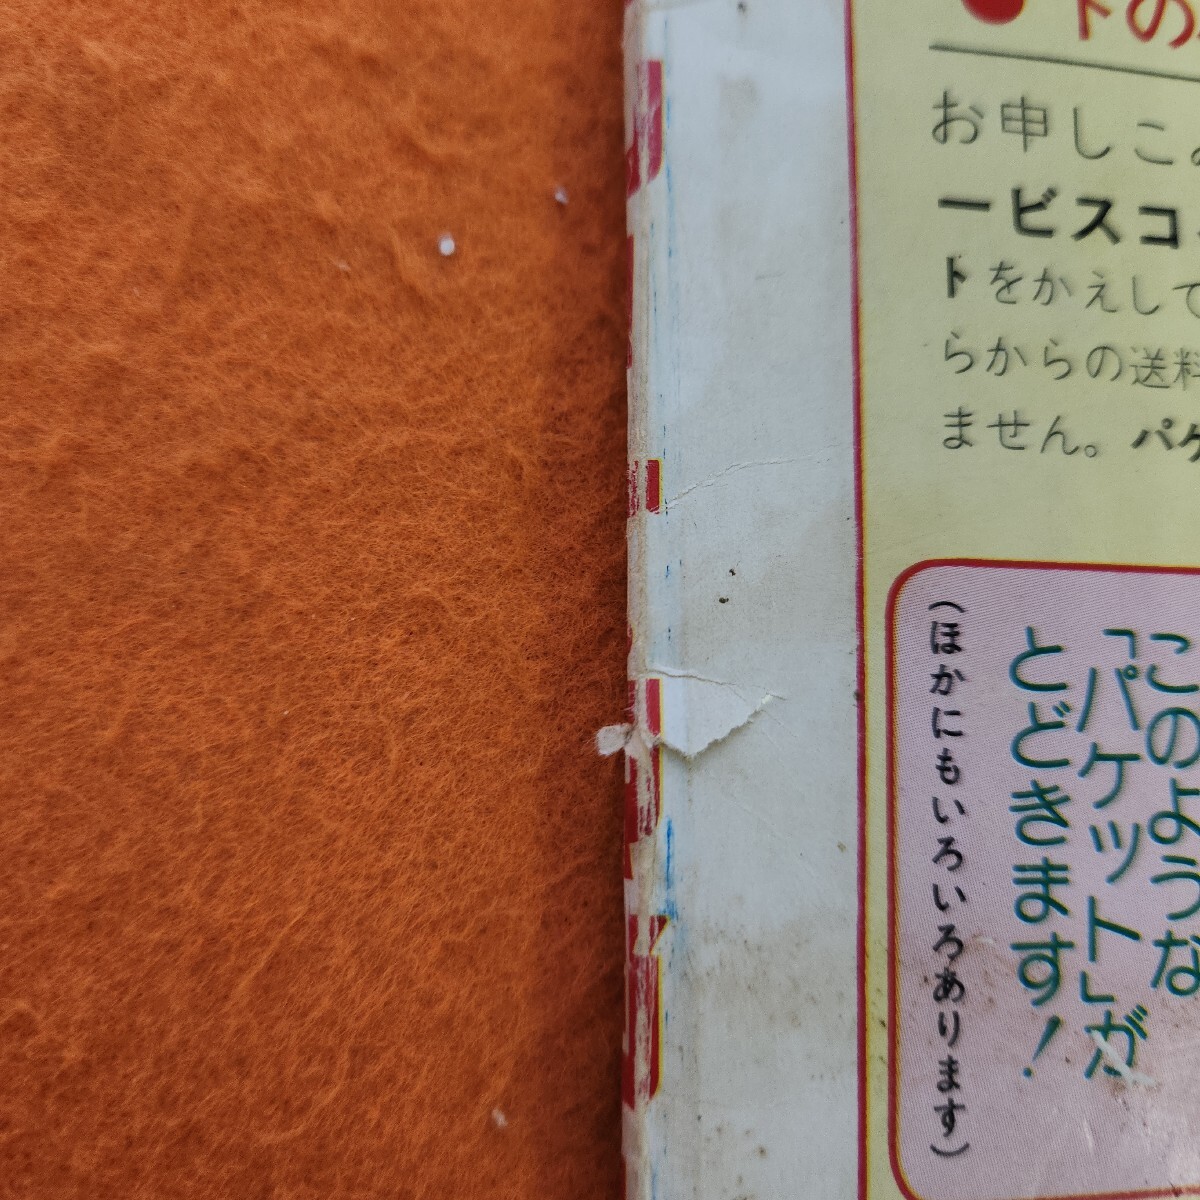 トの
お申しこ
ービスコ
トをかえして
らからの送料
ません。パケ
このような
「パケット」が
とどきます!
(ほかにもいろいろあります)